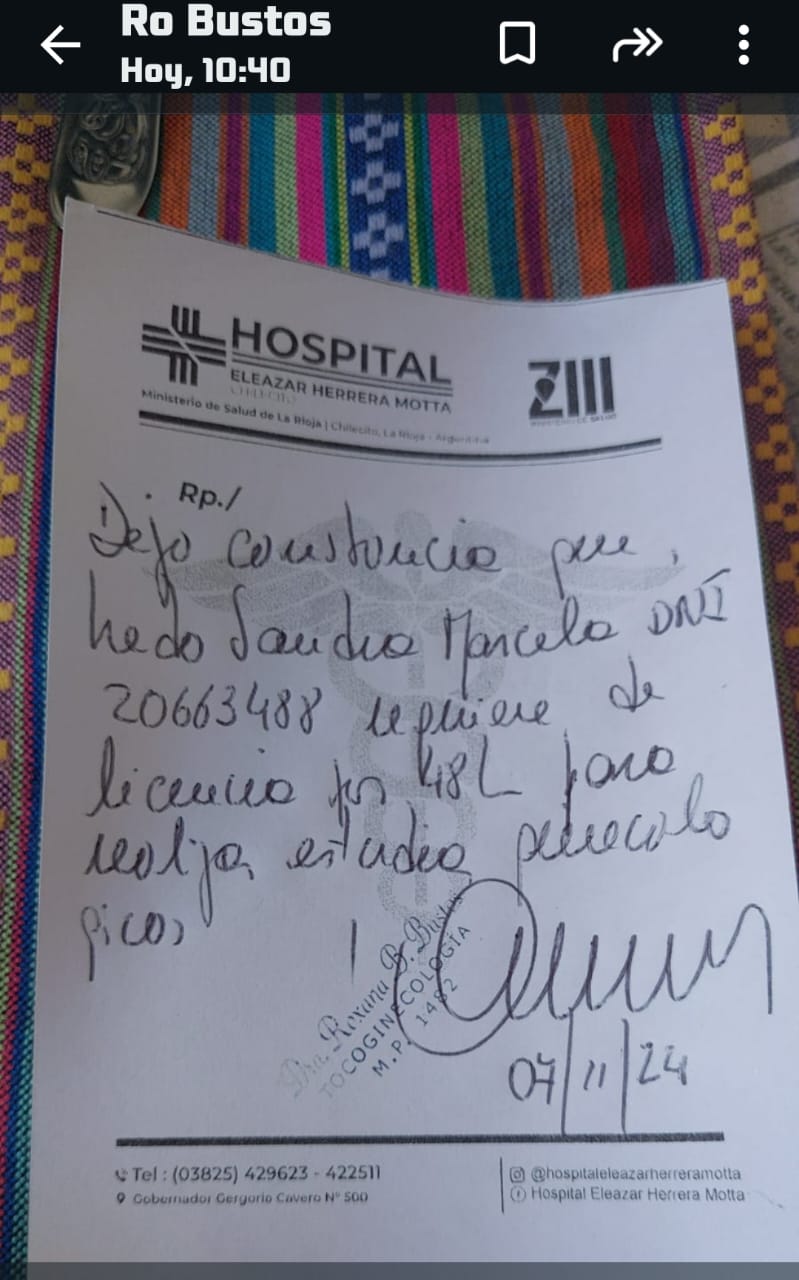 Ro Bustos
Hoy, 10:40
HOSPITAL
ELEAZAR HERRERA MOTTA
CHILECITO
Ministerio de Salud de La Rioja | Chilecito, La Rioja - Argentina
ZIII
MINISTERIO DE SALUD
Rp./
Dejo constancia que,
Sandra Marcela DNI
20663488 requiere de
licencia por 48h para
realizar estudios ginecolo
gicos
Dra. Roxana B. Bustos
TOCOGINECOLOGÍA
M.P. 1482
07/11/24
Tel : (03825) 429623 - 422511
Gobernador Gergorio Cavero N° 500
@hospitaleleazarherreramotta
Hospital Eleazar Herrera Motta